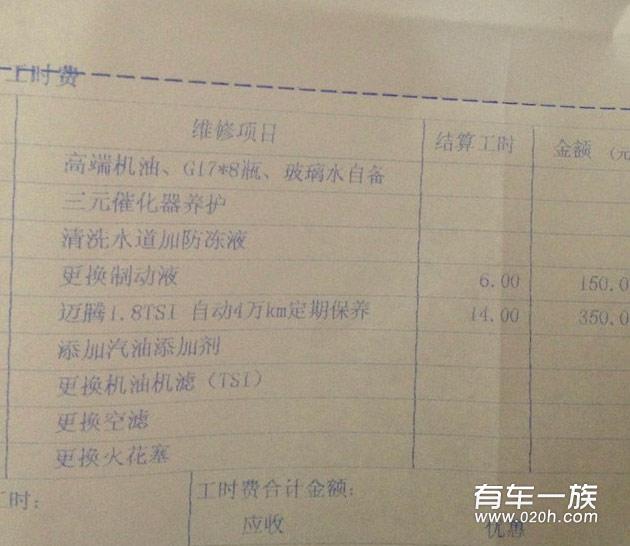 工时费
维修项目 结算工时 金额 (元
高端机油、G17*8瓶、玻璃水自备
三元催化器养护
清洗水道加防冻液
更换制动液 6.00 150.0
迈腾1.8TSI 自动4万km定期保养 14.00 350.0
添加汽油添加剂
更换机油机滤(TSI)
更换空滤
更换火花塞
工时: 工时费合计金额:
应收 优惠
有车一族
www.020h.com